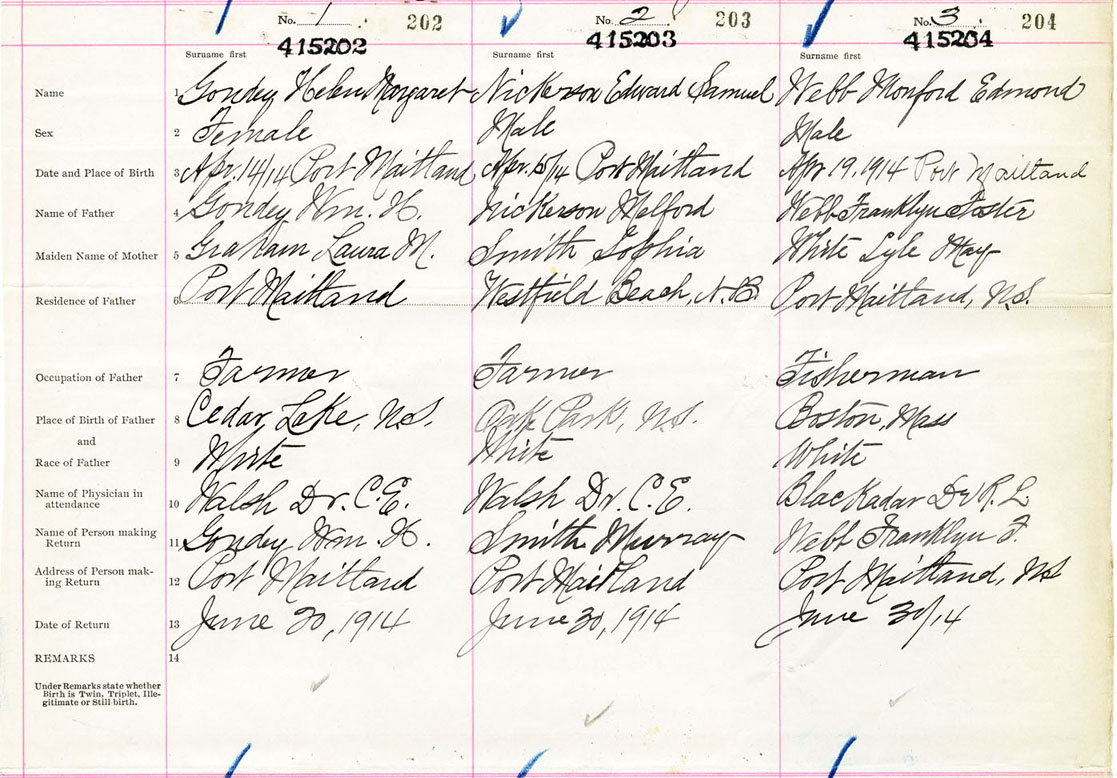 No. 1 202 No. 2 203 No. 3 204
415202 415203 415204
Surname first Surname first Surname first
Name 1 Gondey Helen Margaret Nickerson Edward Samuel Webb Monford Edmond
Sex 2 Female Male Male
Date and Place of Birth 3 Apr. 14/14 Port Maitland Apr. 15/14 Port Maitland Apr 19, 1914 Port Maitland
Name of Father 4 Gondey Wm. H. Nickerson Melford Webb Franklyn Foster
Maiden Name of Mother 5 Graham Laura M. Smith Sophia White Lyle May
Residence of Father 6 Port Maitland Westfield Beach, N.B. Port Maitland, N.S.
Occupation of Father 7 Farmer Farmer Fisherman
Place of Birth of Father 8 Cedar Lake, N.S. Oak Park, N.S. Boston, Mass
and
Race of Father 9 White White White
Name of Physician in
attendance 10 Walsh Dr. C. E. Walsh Dr. C. E. Blackadar Dr R. L
Name of Person making
Return 11 Gondey Wm. H. Smith Murray Webb Franklyn F.
Address of Person mak-
ing Return 12 Port Maitland Port Maitland Port Maitland, N.S
Date of Return 13 June 30, 1914 June 30, 1914 June 30/14
REMARKS 14
Under Remarks state whether
Birth is Twin, Triplet, Ille-
gitimate or Still birth.